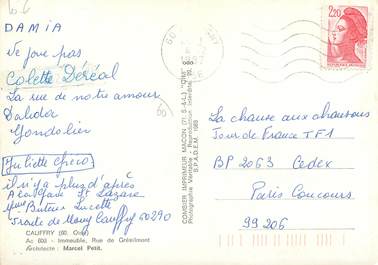 DAMIA
Ne joue pas
Colette Déréal
La rue de notre amour
Dalida
Gondolier
Juliette Gréco
il n'y a plus d'après
A côté Gare de St Lazare
Mme Buteux Lucette
Route de Mouy Cauffry 60290
CAUFFRY (60. Oise)
Ac 603 - Immeuble, Rue de Grésilmont
Architecte : Marcel Petit.
COMBIER IMPRIMEUR MACON (71. S.-&-L.) "CIM"
Photographie Véritable - Reproduction interdite
S.P.A.D.E.M. 1985
2,20
La chance aux chansons
Tour de France TF1
BP 2063 Cedex
Paris Concours
99206